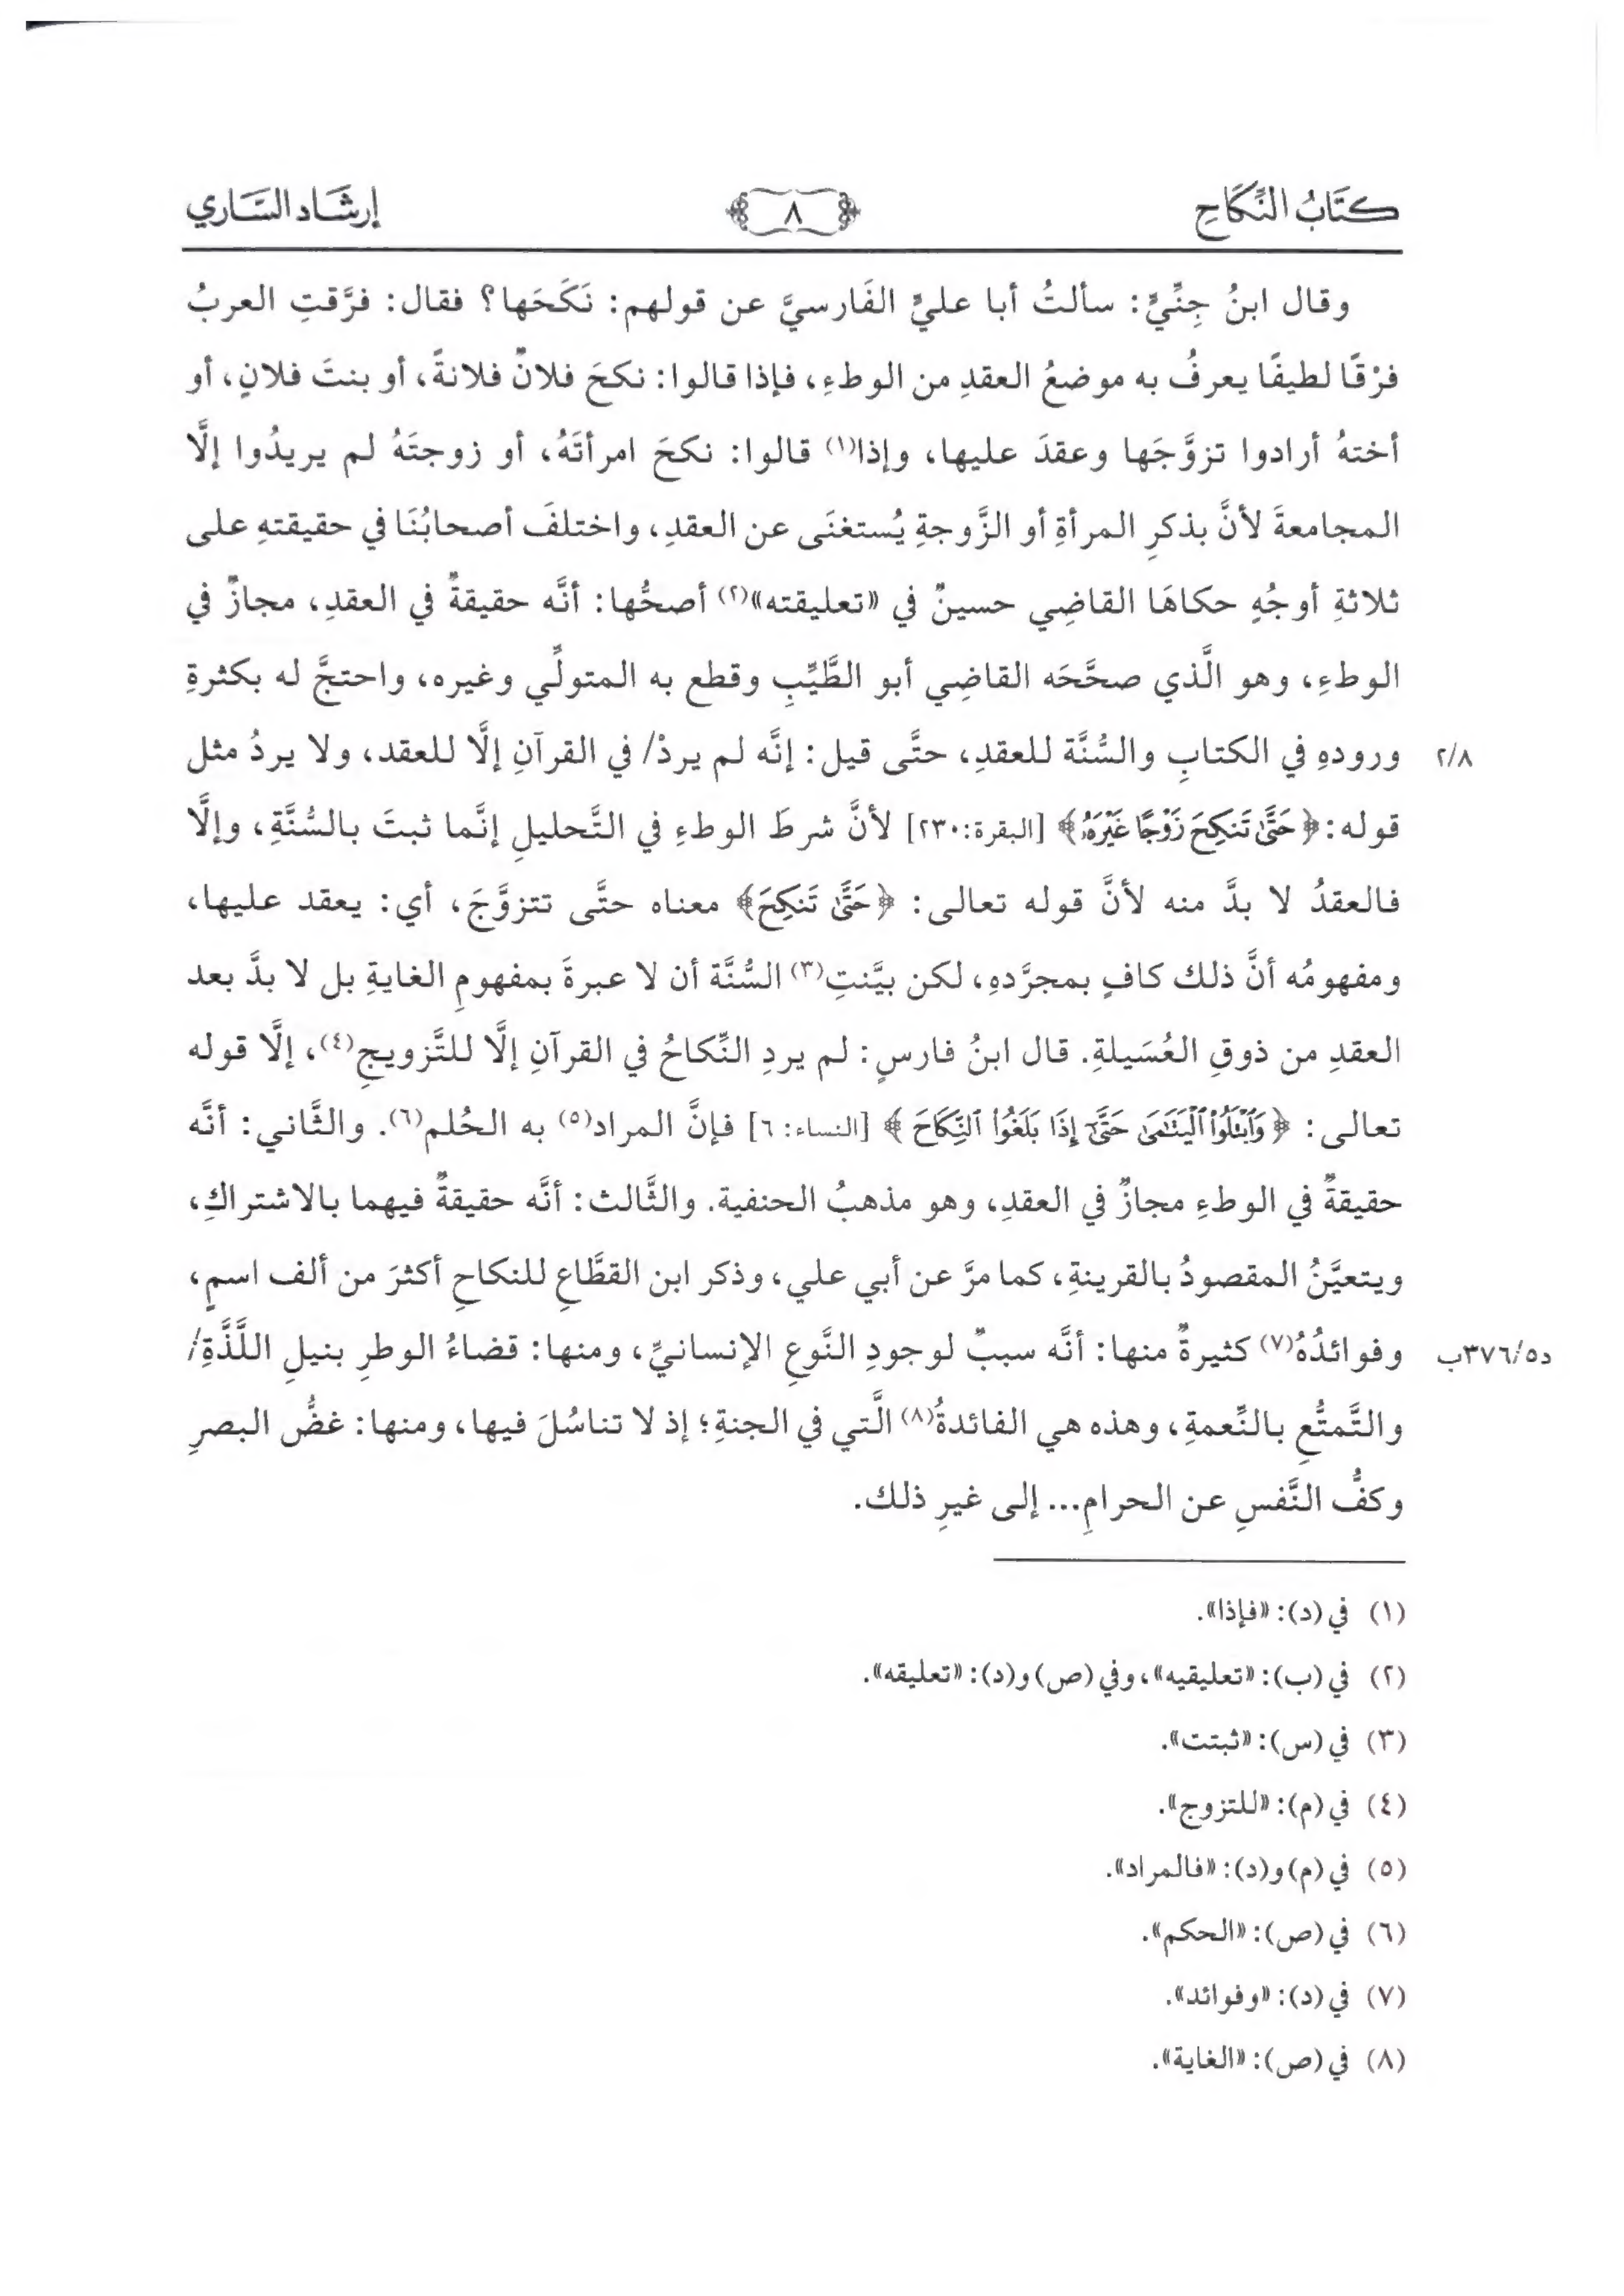 كتَابُ النِّكَاحِ
٨
إرشَاد السَّاري
وقال ابنُ جِنِّيٍّ: سألتُ أبا عليٍّ الفَارسيَّ عن قولهم: نَكَحَها؟ فقال: فرَّقتِ العربُ
فرْقًا لطيفًا يعرفُ به موضعُ العقدِ من الوطءِ، فإذا قالوا: نكحَ فلانٌ فلانةً، أو بنتَ فلانٍ، أو
أختهُ أرادوا تزوَّجَها وعقدَ عليها، وإذا(١) قالوا: نكحَ امرأتَهُ، أو زوجتَهُ لم يريدُوا إلَّا
المجامعةَ لأنَّ بذكرِ المرأةِ أو الزَّوجةِ يُستغنَى عن العقدِ، واختلفَ أصحابُنَا في حقيقتهِ على
ثلاثةِ أوجُهٍ حكاهَا القاضِي حسينٌ في «تعليقته»(٢) أصحُّها: أنَّه حقيقةٌ في العقدِ، مجازٌ في
الوطءِ، وهو الَّذي صحَّحَه القاضِي أبو الطَّيِّبِ وقطع به المتولِّي وغيره، واحتجَّ له بكثرةِ
ورودهِ في الكتابِ والسُّنَّة للعقدِ، حتَّى قيل: إنَّه لم يردْ/ في القرآنِ إلَّا للعقد، ولا يردُ مثل
٢/٨
قوله: ﴿حَتَّىٰ تَنكِحَ زَوْجًا غَيْرَهُۥ﴾ [البقرة:٢٣٠] لأنَّ شرطَ الوطءِ في التَّحليلِ إنَّما ثبتَ بالسُّنَّةِ، وإلَّا
فالعقدُ لا بدَّ منه لأنَّ قوله تعالى: ﴿حَتَّىٰ تَنكِحَ﴾ معناه حتَّى تتزوَّجَ، أي: يعقد عليها،
ومفهومُه أنَّ ذلك كافٍ بمجرَّدهِ، لكن بيَّنتِ(٣) السُّنَّة أن لا عبرةَ بمفهومِ الغايةِ بل لا بدَّ بعد
العقدِ من ذوقِ العُسَيلةِ. قال ابنُ فارسٍ: لم يردِ النِّكاحُ في القرآنِ إلَّا للتَّزويجِ(٤)، إلَّا قوله
تعالى: ﴿وَٱبْتَلُوا۟ ٱلْيَتَـٰمَىٰ حَتَّىٰٓ إِذَا بَلَغُوا۟ ٱلنِّكَاحَ﴾ [النساء: ٦] فإنَّ المراد(٥) به الحُلم(٦). والثَّاني: أنَّه
حقيقةٌ في الوطءِ مجازٌ في العقدِ، وهو مذهبُ الحنفية. والثَّالث: أنَّه حقيقةٌ فيهما بالاشتراكِ،
ويتعيَّنُ المقصودُ بالقرينةِ، كما مرَّ عن أبي علي، وذكر ابن القطَّاعِ للنكاحِ أكثرَ من ألف اسمٍ،
وفوائدُهُ(٧) كثيرةٌ منها: أنَّه سببٌ لوجودِ النَّوعِ الإنسانيِّ، ومنها: قضاءُ الوطرِ بنيلِ اللَّذَّةِ/
د٣٧٦/٥ب
والتَّمتُّعِ بالنِّعمةِ، وهذه هي الفائدةُ(٨) الَّتي في الجنةِ؛ إذ لا تناسُلَ فيها، ومنها: غضُّ البصرِ
وكفُّ النَّفسِ عن الحرامِ... إلى غيرِ ذلك.
(١) في (د): «فإذا».
(٢) في (ب): «تعليقيه»، وفي (ص) و(د): «تعليقه».
(٣) في (س): «ثبتت».
(٤) في (م): «للتزوج».
(٥) في (م) و(د): «فالمراد».
(٦) في (ص): «الحكم».
(٧) في (د): «وفوائد».
(٨) في (ص): «الغاية».